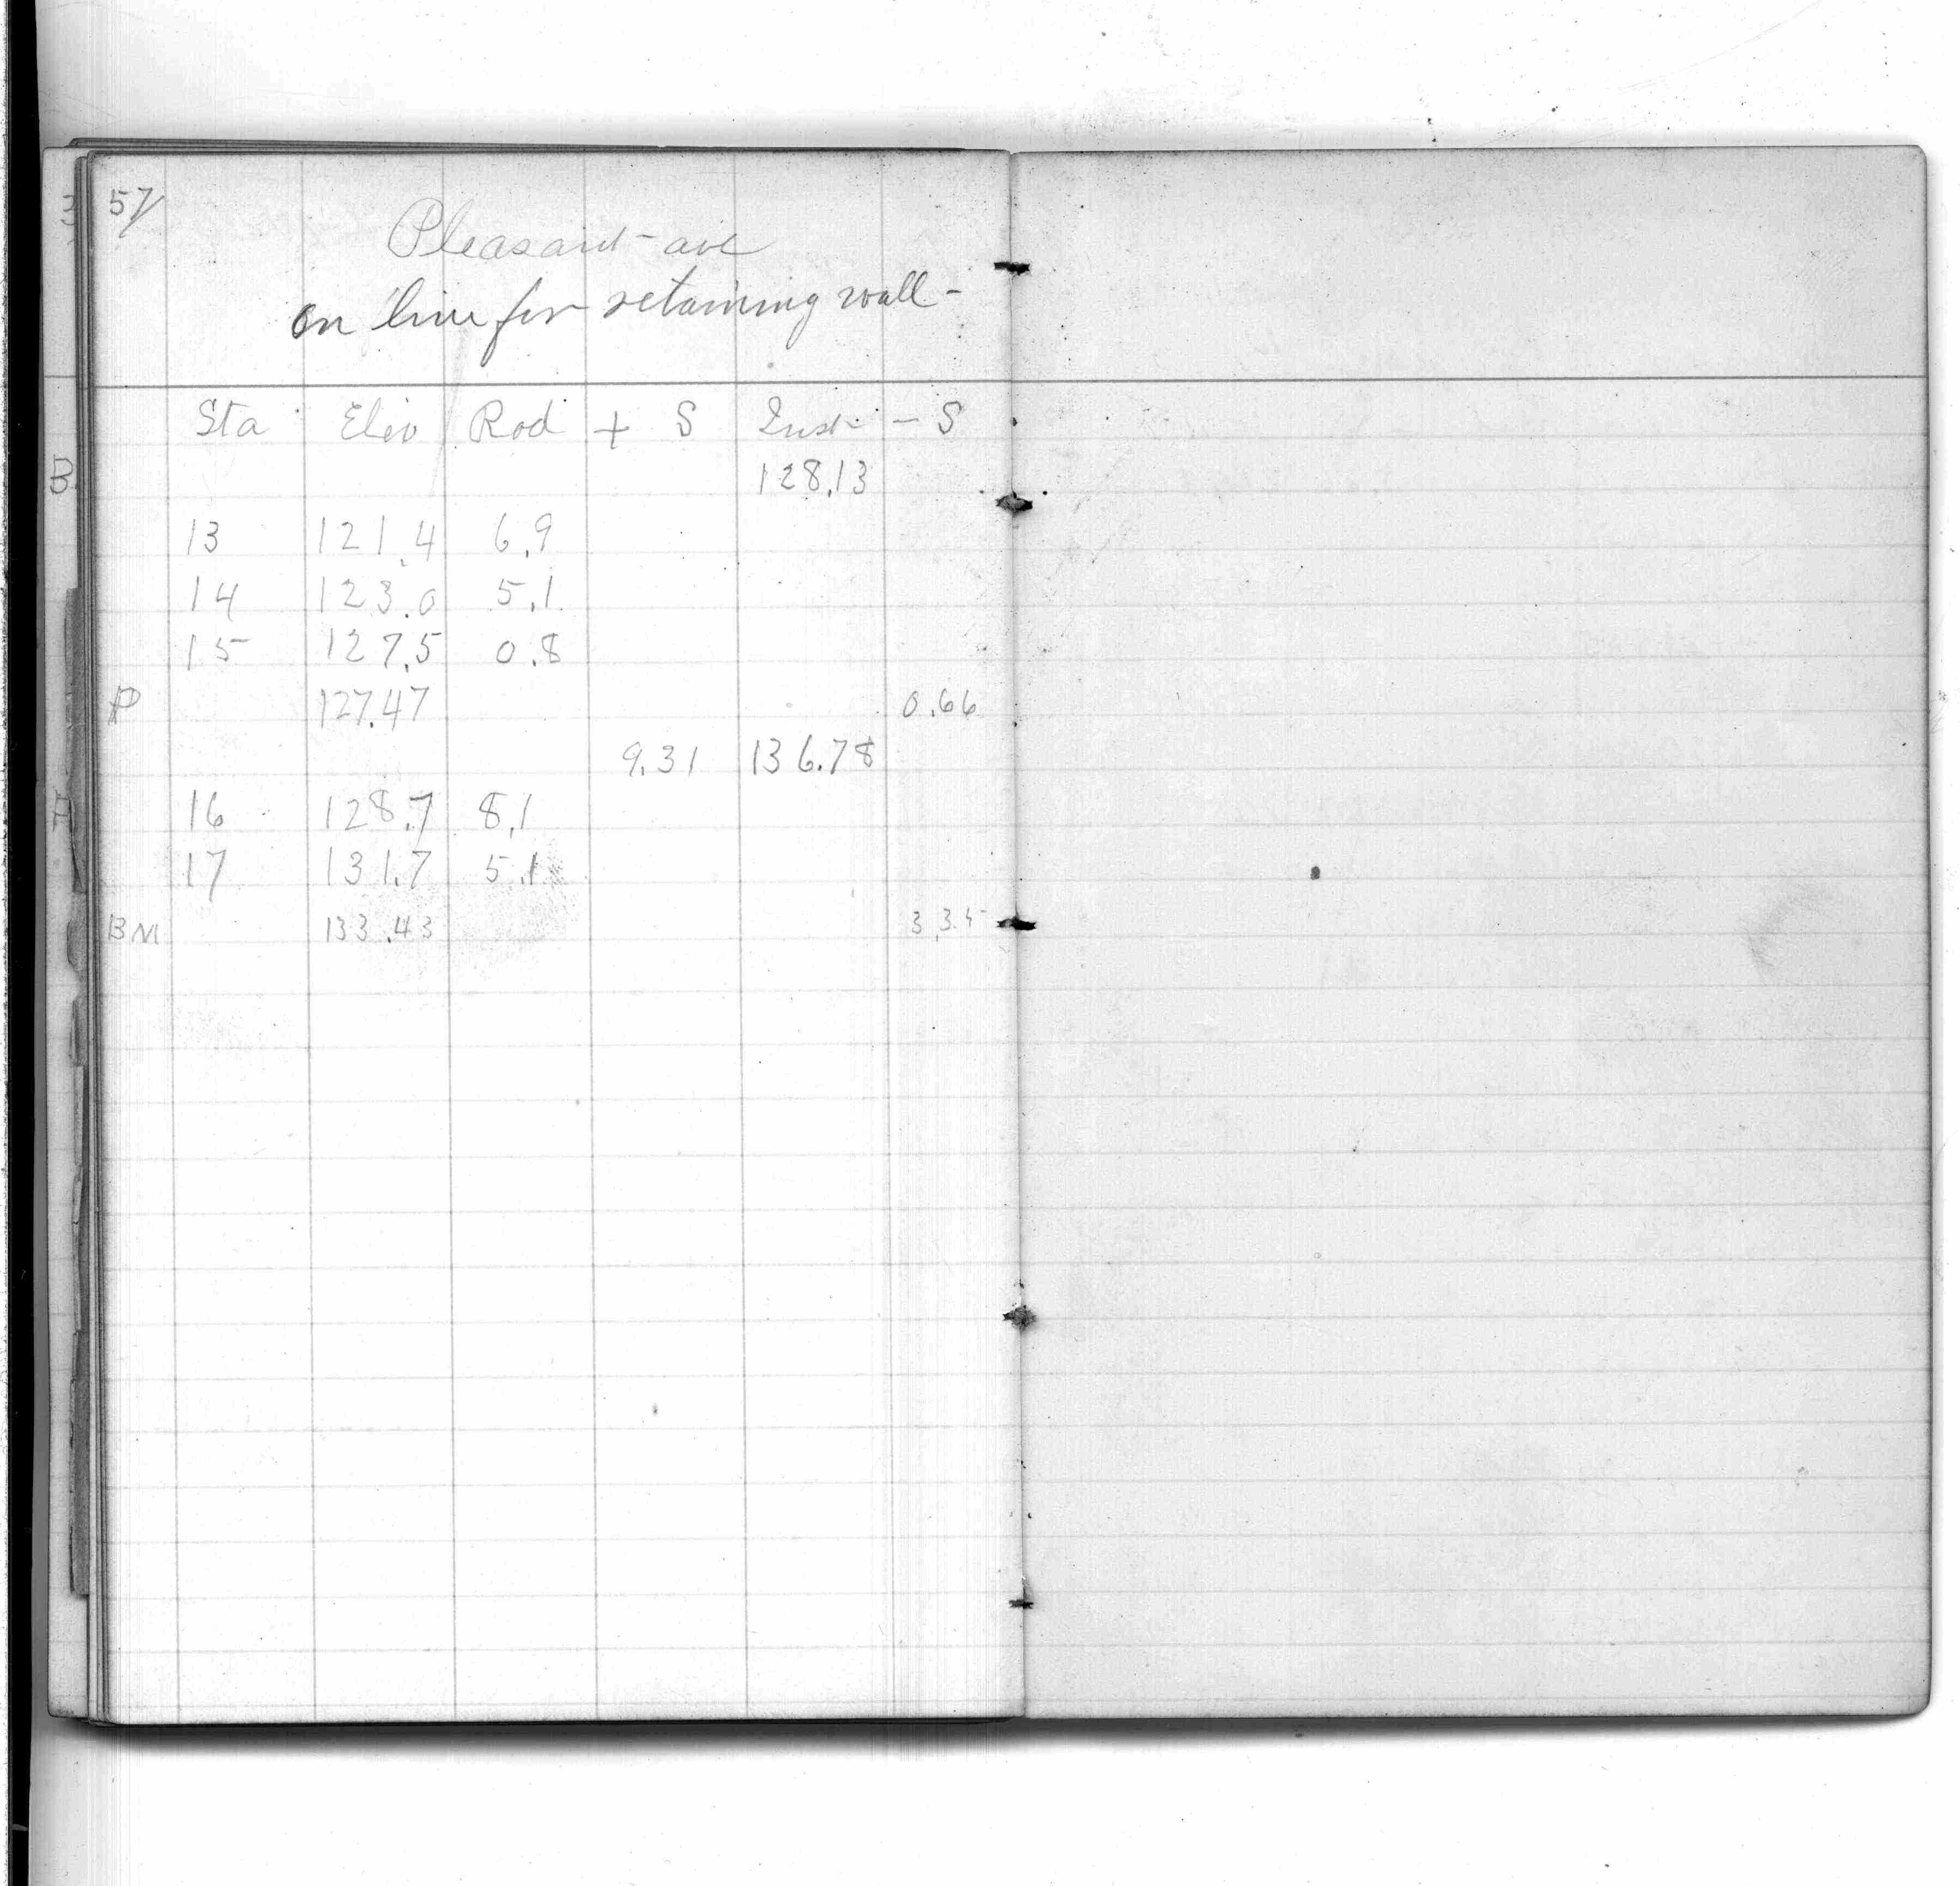 57
Pleasant ave
on line for retaining wall -
Sta Elev Rod + S Inst - S
B 128.13
13 121.4 6.9
14 123.0 5.1
15 127.5 0.8
P 127.47 0.66
9.31 136.78
16 128.7 8.1
17 131.7 5.1
BM 133.43 3.35